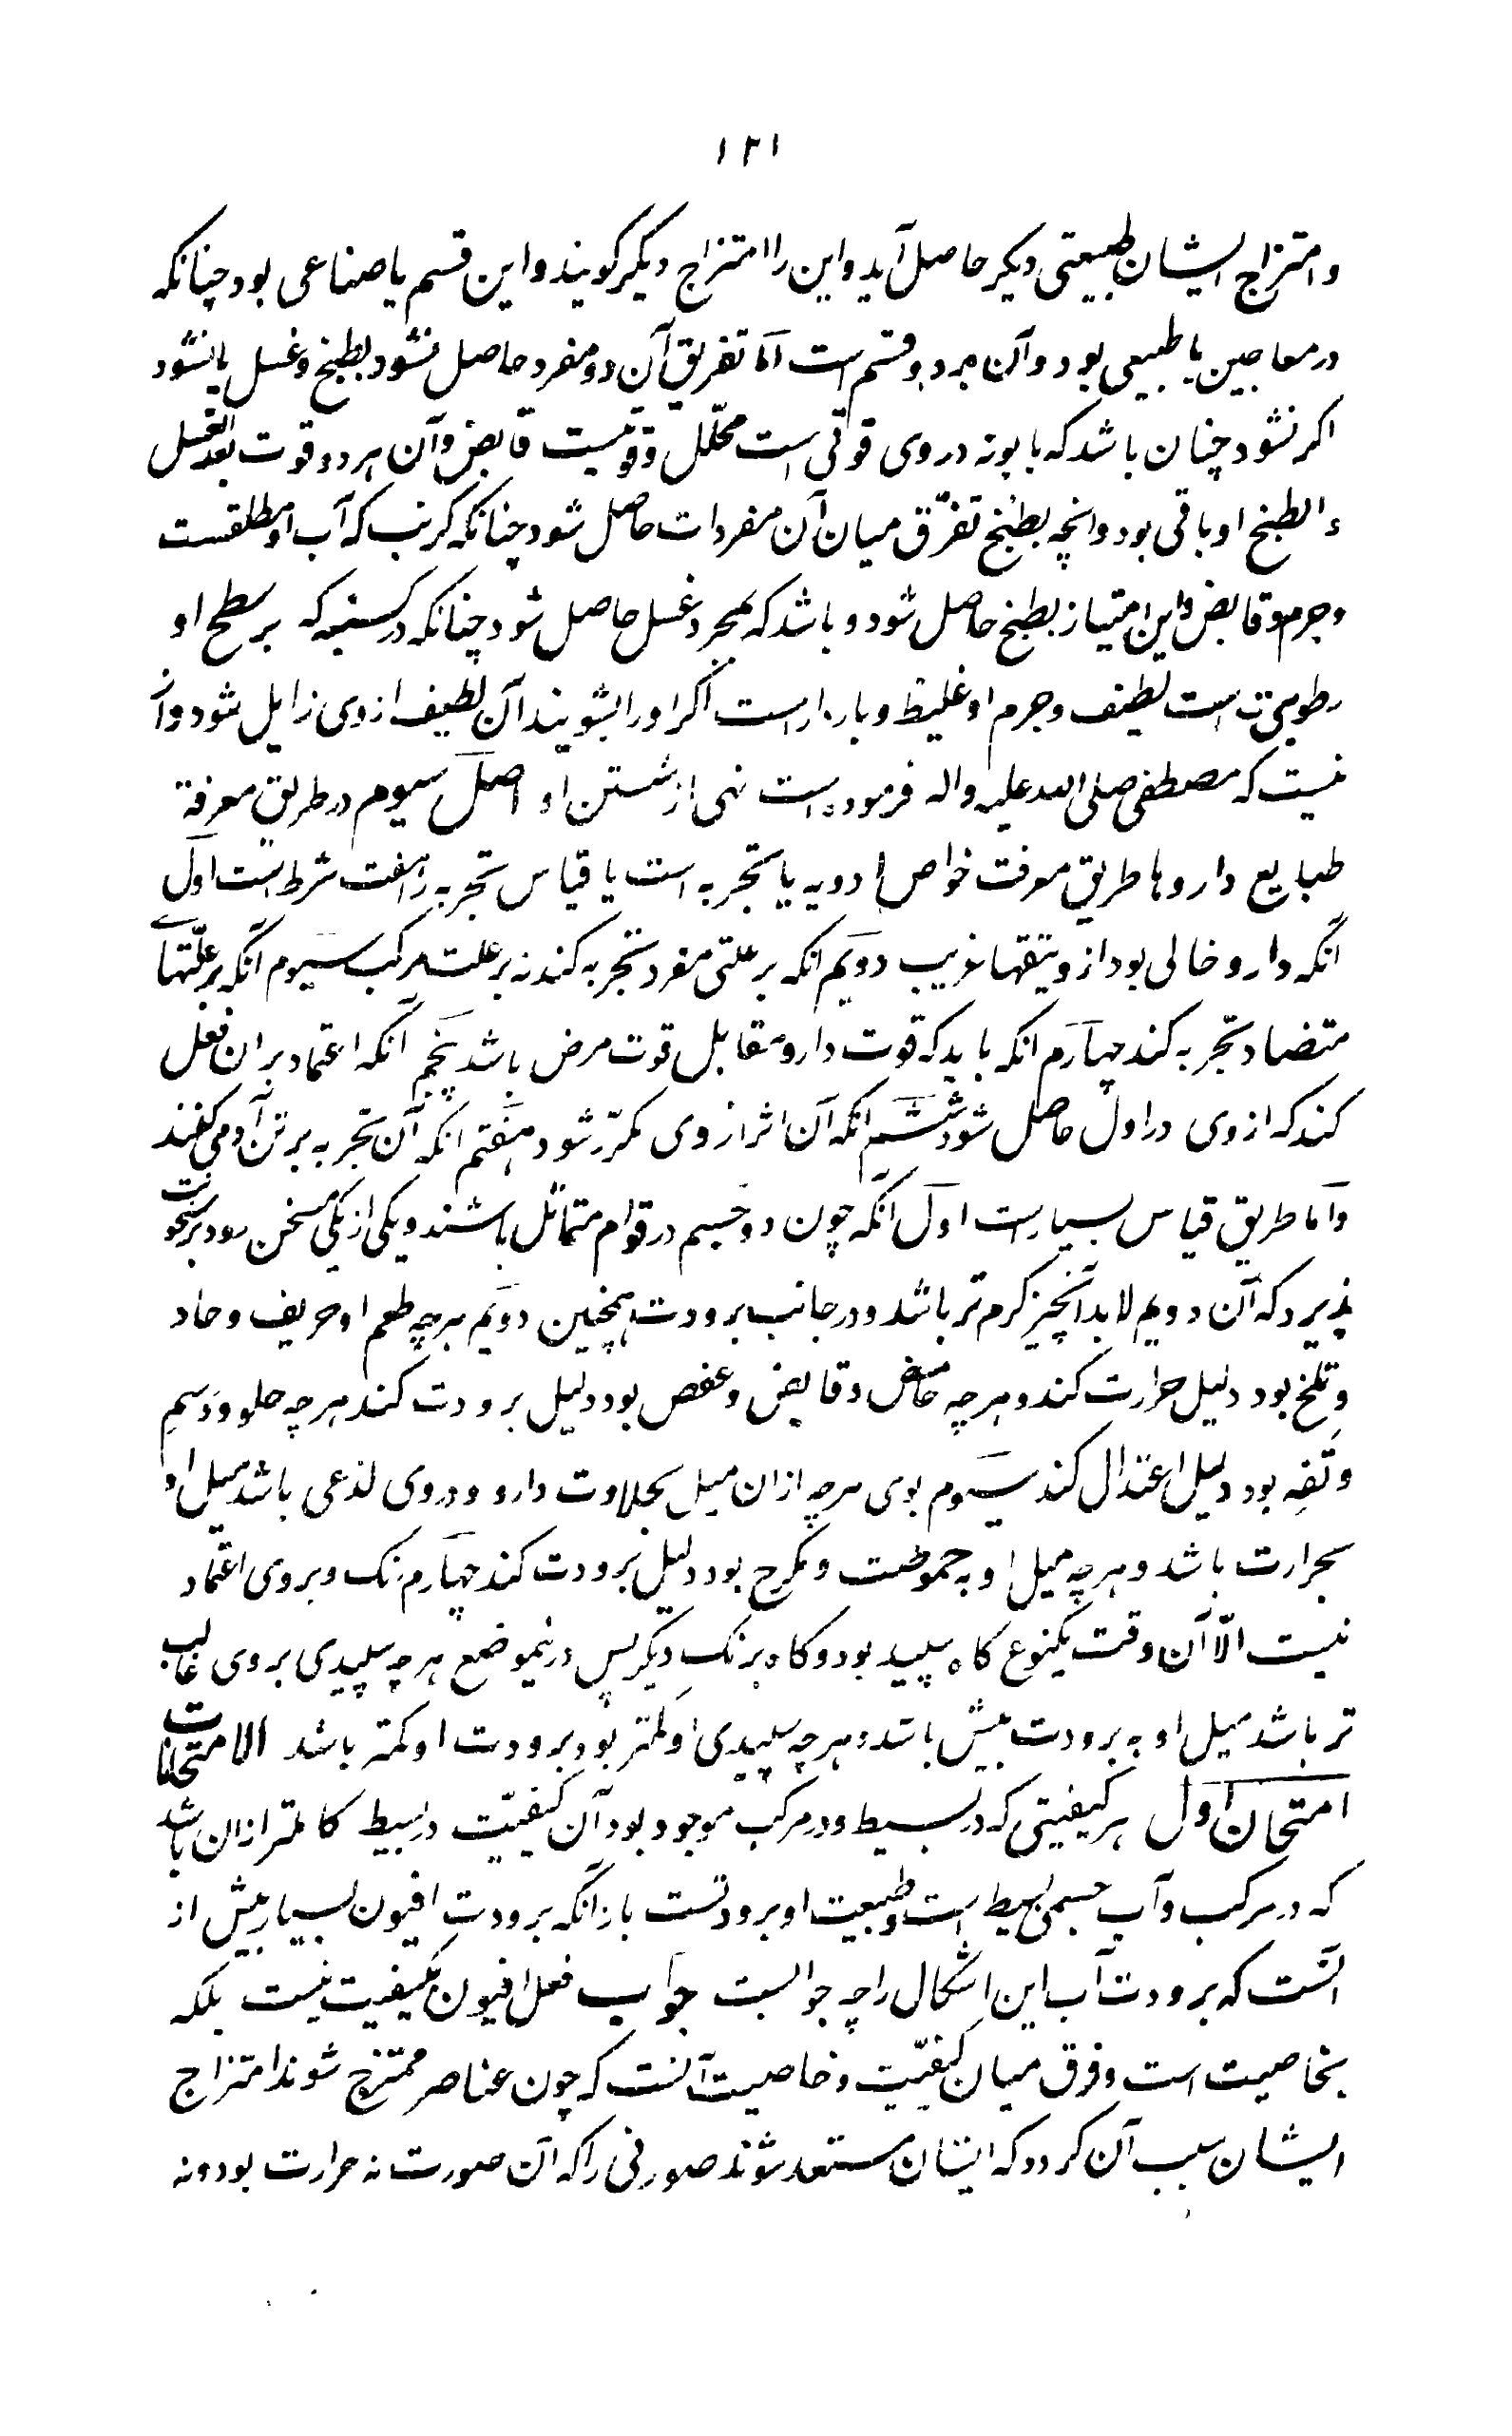 ۱۲۱
و امتزاج ایشان طبیعتی دیکر حاصل آید و این را امتزاج دیکر کویند و این قسم یا صناعی بود چنانکه
در معاجین یا طبیعی بود و آن بر دو قسم است اما تفریق آن دو مفرد حاصل نشود بطبخ و غسل یا بشود
اکر نشود چنان باشد که بابونه در وی قوتی است محلّل و قوتیست قابض و آن هر دو قوت بعد الغسل
و الطبخ او باقی بود و انچه بطبخ تفرّق میان آن مفردات حاصل شود چنانکه کرنب که آب او مطلقست
و جرم او قابض و این امتیاز بطبخ حاصل شود و باشد که بمجرد غسل حاصل شود چنانکه در کسنه که بر سطح او
رطوبتی است لطیف و جرم او غلیظ و بارد است اکر او را بشویند آن لطیف از وی زایل شود و از
نیست که مصطفی صلی الله علیه و اله فرموده است نهی از شستن او اصل سیوم در طریق معرفة
طبایع داروها طریق معرفت خواص ادویه یا تجربه است یا قیاس تجربه را هفت شرط است اول
انکه دارو خالی بود از کیفیتها غریب دویم انکه بر علتی مفرد تجربه کند نه بر علت مرکب سیوم انکه بر علّتهای
متضاد تجربه کند چهارم انکه باید که قوت دارو مقابل قوت مرض باشد پنجم انکه اعتماد بران فعل
کند که از وی در اول حاصل شود ششم انکه آن اثر از وی مکرّر شود هفتم انکه آن تجربه بر تن آدمی کنند
و اما طریق قیاس بسیار است اول انکه چون دو جسم در قوام متماثل باشند و یکی از یکی مسخن زودتر سخونت
پذیرد که آن دویم لابد آنچیز کرم تر باشد و در جانب برودت همچنین دویم هرچه طعم او حریف و حاد
و تلخ بود دلیل حرارت کند و هرچه حامض و قابض و عفص بود دلیل برودت کند هرچه حلو و دسم
و تفه بود دلیل اعتدال کند سیوم بوی هرچه ازان میل بحلاوت دارد و در وی لذعی باشد میل او
بحرارت باشد و هرچه میل او به حموضت و کرج بود دلیل برودت کند چهارم رنک و بروی اعتماد
نیست الّا آن وقت یکنوع کاه سپید بود و کاه برنک دیکر پس درینموضع هرچه سپیدی بروی غالب
تر باشد میل او به برودت بیش باشد و هرچه سپیدی او کمتر بود برودت او کمتر باشد الامتحانات
امتحان اول هر کیفیتی که در بسیط و در مرکب موجود بود آن کیفیّت در بسیط کاملتر ازان باشد
که در مرکب و آب جسمی بسیط است و طبیعت او برودتست باز انکه برودت افیون بسیار بیش از
انست که برودت آب این اشکال را چه جوابست جواب فعل افیون بکیفیت نیست بلکه
بخاصیت است و فرق میان کیفیّت و خاصیت آنست که چون عناصر ممتزج شوند امتزاج
ایشان سبب آن کردد که ایشان مستعد شوند صورتی را که آن صورت نه حرارت بود و نه